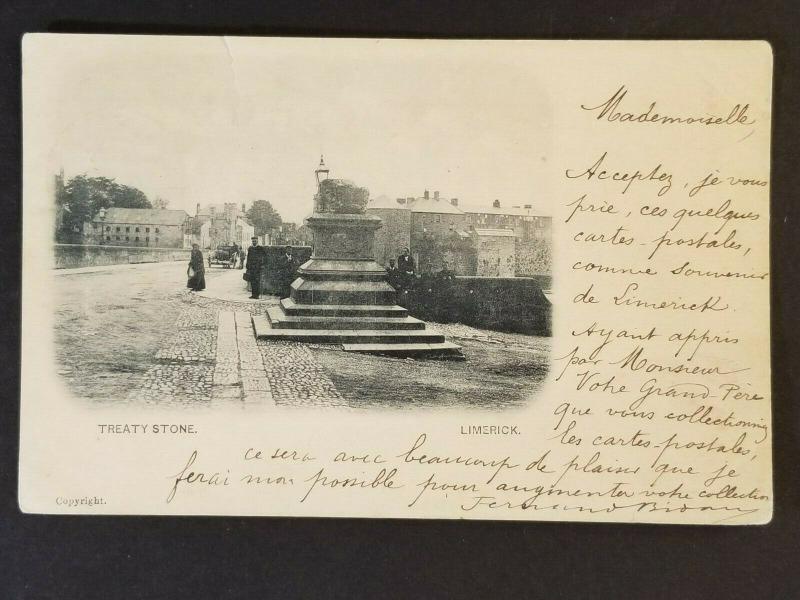 Mademoiselle,
Acceptez, je vous
prie, ces quelques
cartes-postales,
comme souvenir
de Limerick.
Ayant appris
par Monsieur
Votre Grand-Père
que vous collectionniez
les cartes-postales,
ce sera avec beaucoup de plaisir que je
ferai mon possible pour augmenter votre collection
Fernand
TREATY STONE.
LIMERICK.
Copyright.